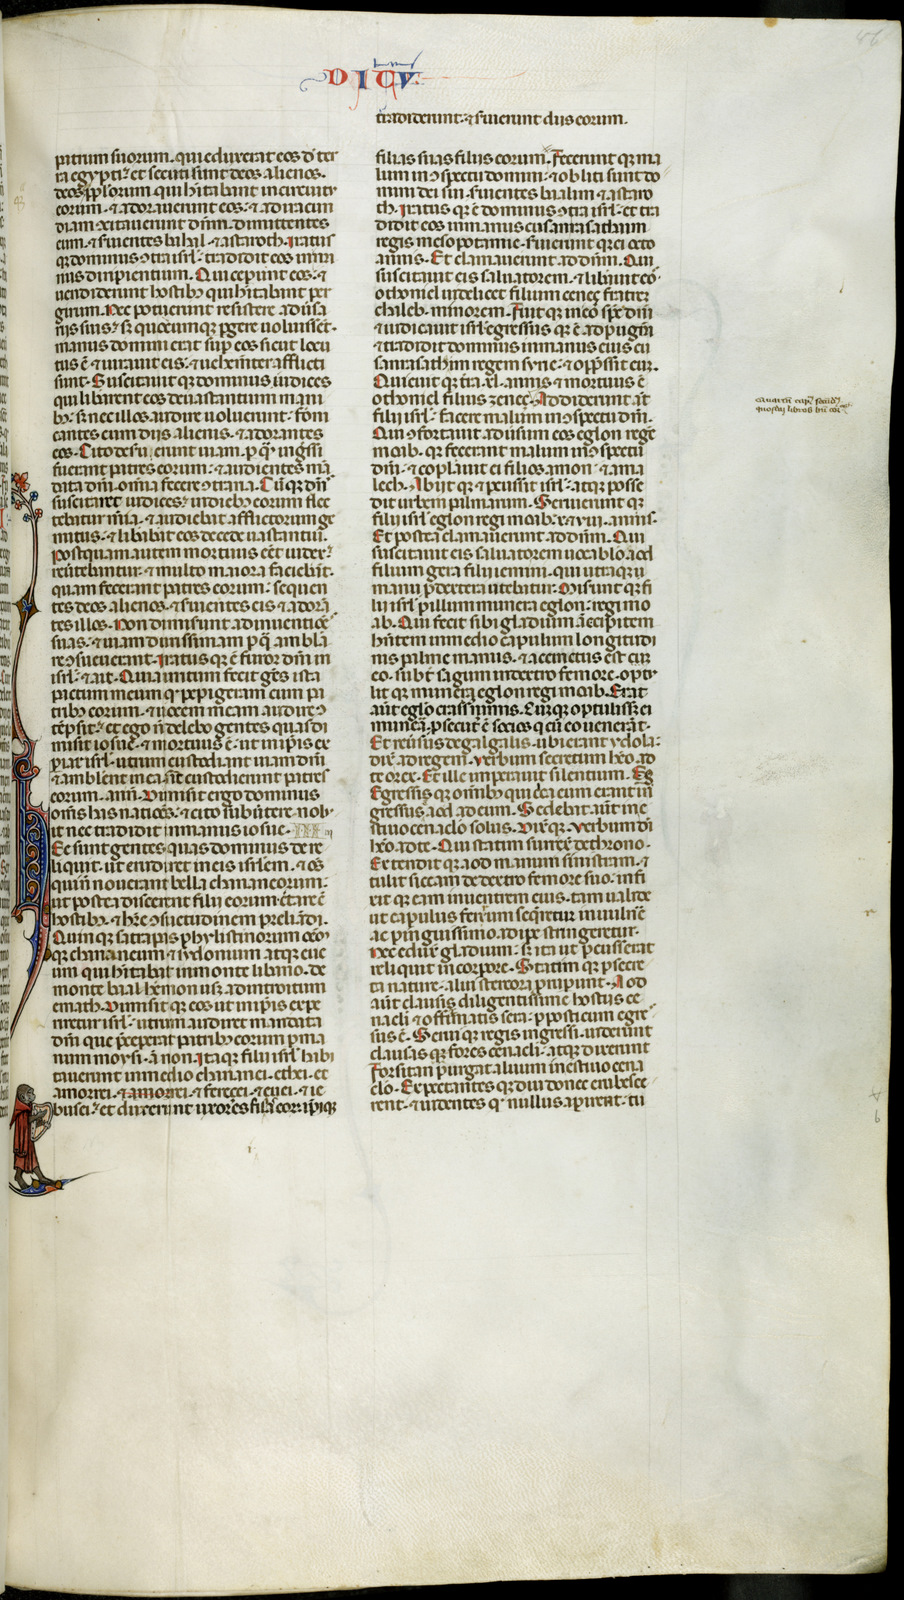 DICV
patrum suorum. qui eduxerat eos d̄ ter
ra egypti. ⁊ et secuti sunt deos alienos.
deos pp̄lorum qui h̄itabant in circuitu
eorum. ⁊ adorauerunt eos. ⁊ ad iracun
diam ɔcitauerunt dn̄m. dimittentes
eum. ⁊ s̄uientes bahal. ⁊ astaroth. Iratus
qꝫ dominus ɔtra isrl̄. tradidit eos in ma
nus diripientium. Qui ceperunt eos. ⁊
uendiderunt hostibꝫ qui h̄itabant per
girum. Nec potuerunt resistere aduersa
riis suis. sꝫ quocumqꝫ ꝑgere uoluissēt.
manus domini erat sup̄ eos sicut locu
tus ē. ⁊ iurauit eis. ⁊ uehem̄ter afflicti
sunt. Suscitauit qꝫ dominus iudices
qui liberarent eos de uastantium mani
bꝫ. sꝫ nec illos audire uoluerunt. forni
cantes cum diis alienis. ⁊ adorantes
eos. Cito deseruerunt uiam. ꝑ q̄ ingressi
fuerant patres eorum. ⁊ audientes man
data dn̄i. omnia fecere ɔtraria. Cumqꝫ dn̄s
suscitaret iudices. in diebꝫ eorum flec
tebatur mīa. ⁊ audiebat afflictorum ge
mitus. ⁊ lib̄abat eos de cede uastantium.
Postquam autem mortuus eēt iudex.
reūtebantur. ⁊ multo maiora faciebant.
quam fecerant patres eorum. sequen
tes deos alienos. ⁊ s̄uientes eis. ⁊ adorā
tes illos. Non dimisunt adinuentiōes
suas. ⁊ uiam durissimam ꝑ q̄ ambula
re ɔsueuerant. Iratus qꝫ ē furor dn̄i in
isrl̄. ⁊ ait. Quia irritum fecit gēs ista
pactum meum qd̄ pepigeram cum pa
tribꝫ eorum. ⁊ uocem meam audire ɔ
tēpsit. ⁊ et ego n̄ delebo gentes quas di
misit iosue. ⁊ mortuus ē. ut in ip̄is ex
piar isrl̄. utrum custodiant uiam dn̄i
⁊ ambulent in ea sic̄ custodierunt patres
eorum. añ. Dimisit ergo dominus
om̄s has natiōes. ⁊ cito subūtere nob
it nec tradidit in manus iosue. III
Ee sunt gentes quas dominus dere
liquit. ut erudiret in eis isrl̄em. ⁊ oēs
qui n̄ nouerant bella chananeorum.
ut postea discerent filii eorum c̄tare cū
hostibꝫ. ⁊ hr̄e ɔsuetudinem preliandi.
Quinqꝫ satrapas phylistinorum oēm
qꝫ chananeum. ⁊ sydonium atqꝫ eue
um qui h̄itabat in monte libano. de
monte baal hermon usqꝫ ad introitum
emath. Dimisit qꝫ eos ut in ip̄is expe
riretur isrl̄. utrum audiret mandata
dn̄i que p̄ceperat patribꝫ eorum ꝑ ma
num moysi. an non. Itaqꝫ filii isrl̄ habi
tauerunt in medio chananei. ethei. et
amorrei. ⁊ amorrei. ⁊ ferezei. ⁊ euei. ⁊ ie
busei. ⁊ et duxerunt uxores filias eor. ipiqꝫ
tradiderunt. ⁊ s̄uierunt diis eorum.
filias suas filiis eorum. Fecerunt qꝫ ma
lum in ɔspectu domini. ⁊ obliti sunt do
mini dei sui. s̄uientes baalim. ⁊ astaro
th. Iratus qꝫ ē dominus ɔtra isrl̄. et tra
didit eos in manus cusanrasathaim
regis mesopotamie. s̄uierunt qꝫ ei octo
annis. Et clamauerunt ad dn̄m. Qui
suscitauit eis saluatorem. ⁊ lib̄auit eos
othoniel uidelicet filium cenez fratrem
chaleb. minorem. Fuit qꝫ in eo sp̄c dn̄i
⁊ iudicauit isrl̄. egressus qꝫ ē ad pugnam
⁊ tradidit dominus in manus eius cu
sanrasathaim regem syrie. ⁊ opp̄ssit eum.
Quieuit qꝫ t̄ra xl. annis ⁊ mortuus ē
othoniel filius zenec. Addiderunt aūt
filii isrl̄. facere malum in ɔspectu dn̄i.
Qui ɔfortauit aduersum eos eglon regē
moab. qꝫ fecerant malum in ɔspectu
dn̄i. ⁊ copulauit ei filios amon. ⁊ ama
lech. Abiit qꝫ ⁊ percussit isrl̄. atqꝫ posse
dit urbem palmarum. Seruierunt qꝫ
filii isrl̄ eglon regi moab. x. ⁊ viii. annis.
Et postea clamauerunt ad dn̄m. Qui
suscitauit eis saluatorem uocabulo aod
filium gera filii iemini. qui utraqꝫ u
manu ꝓ dextera utebatur. Miserunt qꝫ fi
lii isrl̄ ꝑ illum munera eglon. regi mo
ab. Qui fecit sibi gladium ancipitem
hn̄tem in medio capulum longitudi
nis palme manus. ⁊ accinctus est cum
eo. subt̄ sagum in dextro femore. optu
lit qꝫ munera eglon regi moab. Erat
aūt eglo crassus nimis. Cumqꝫ optulissꝫ ei
munera. ꝓsecut̄ ē socios q̄ cū eo uenerant.
Et reūsus de galgalis. ubi erant ydola.
dix̄ ad regem. Verbum secretum h̄eo ad
te o rex. Et ille imperauit silentium. Eg
Egressis qꝫ om̄ibꝫ qui circa eum erant in
gressus ē aod ad eum. Sedebat aūt in e
stiuo cenaclo solus. Dix̄qꝫ. Verbum dī
h̄eo ad te. Qui statim surrexit de throno.
Extendit qꝫ aod manum sinistram. ⁊
tulit siccam de dextro femore suo. infi
xit qꝫ eam in uentrem eius. tam ualide
ut capulus ferrum seq̄retur in uulnere
ac pinguissimo adipe stringeretur.
Nec eduxit gladium. sꝫ ita ut percusserat
reliquit in corpore. Statim qꝫ ꝑ secre
ta nature. alui stercora proruperunt. Aod
aūt clausis diligentissime hostiis ce
nacli ⁊ offirmatis sera. ꝑ posticum egres
sus ē. Seruiqꝫ regis ingressi. uiderunt
clausas qꝫ fores cenacli. atqꝫ dixerunt
Forsitan purgat aluum in estiuo cena
clo. Expectantes qꝫ diu donec erubesce
rent. ⁊ uidentes qd̄ nullus aperiret. tu